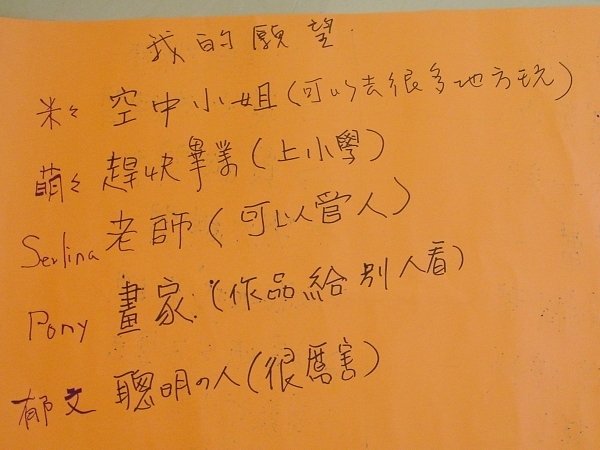 我的願望
米々 空中小姐(可以去很多地方玩)
萌々 趕快畢業(上小學)
Serlina 老師(可以管人)
Pony 畫家(作品給別人看)
郁文 聰明の人(很厲害)